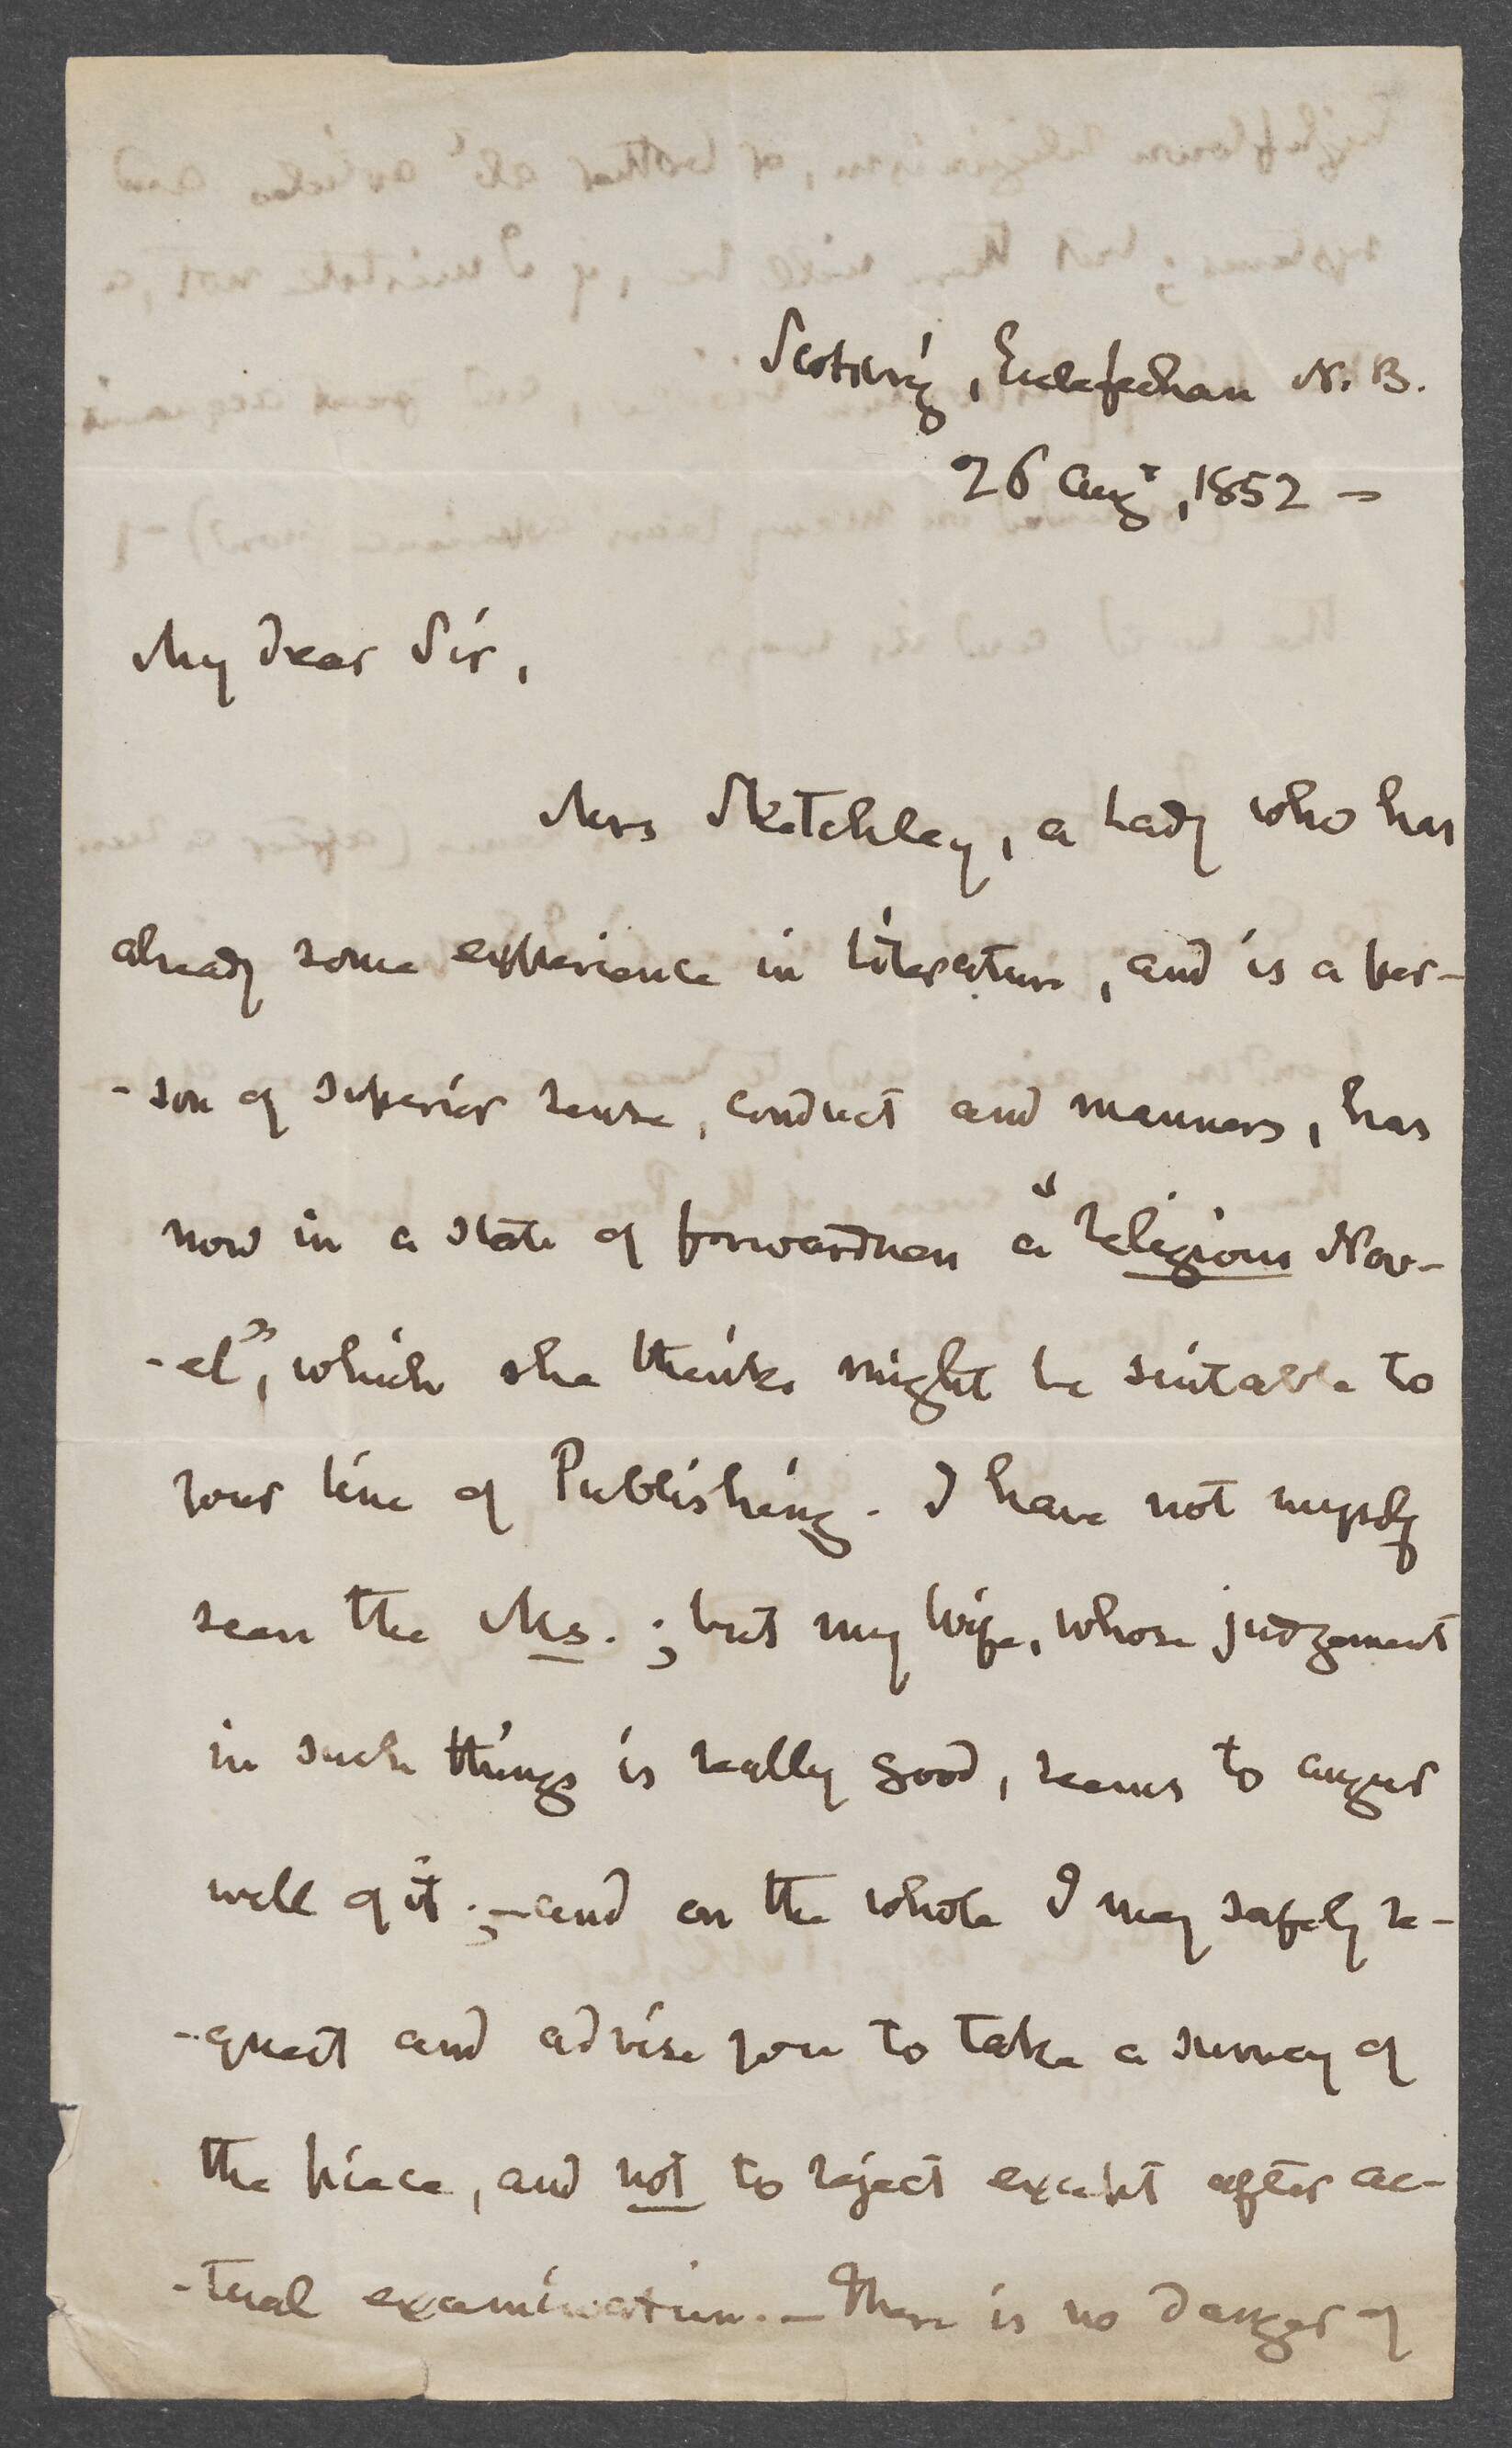 Scotsbrig, Ecclefechan N.B.
26 Augt, 1852 —
My dear Sir,
Mrs Sketchley, a Lady who has
already some experience in Literature, and is a per-
-son of superior sense, conduct and manners, has
now in a state of forwardness a "Religious Nov-
-el", which she thinks might be suitable to
your line of Publishing. I have not myself
seen the Ms. ; but my Wife, whose judgement
in such things is really good, seems to augur
well of it ;— and on the whole I may safely re-
-quest and advise you to take a survey of
the piece, and not to reject except after ac-
-tual examination. — There is no danger of